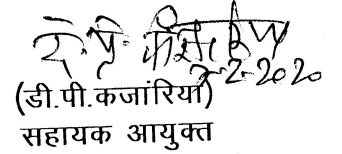 2-2020
(डी.पी.कजांरिया)
सहायक आयुक्त